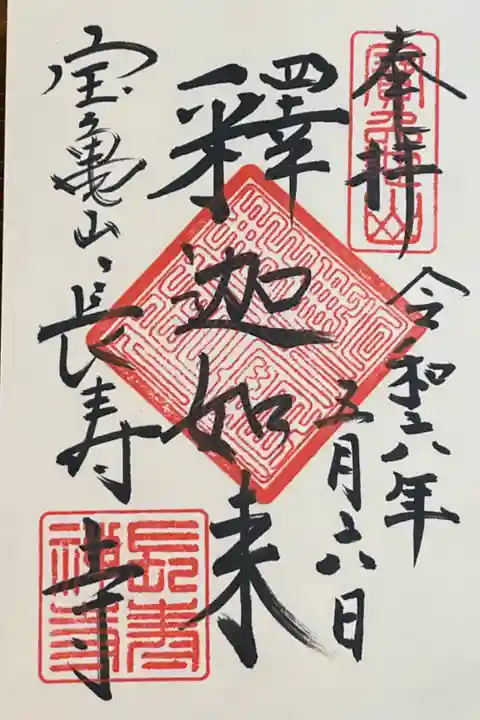 奉拝
令和八年
五月六日
釋迦如来
宝亀山 長寿寺
長壽
禅寺